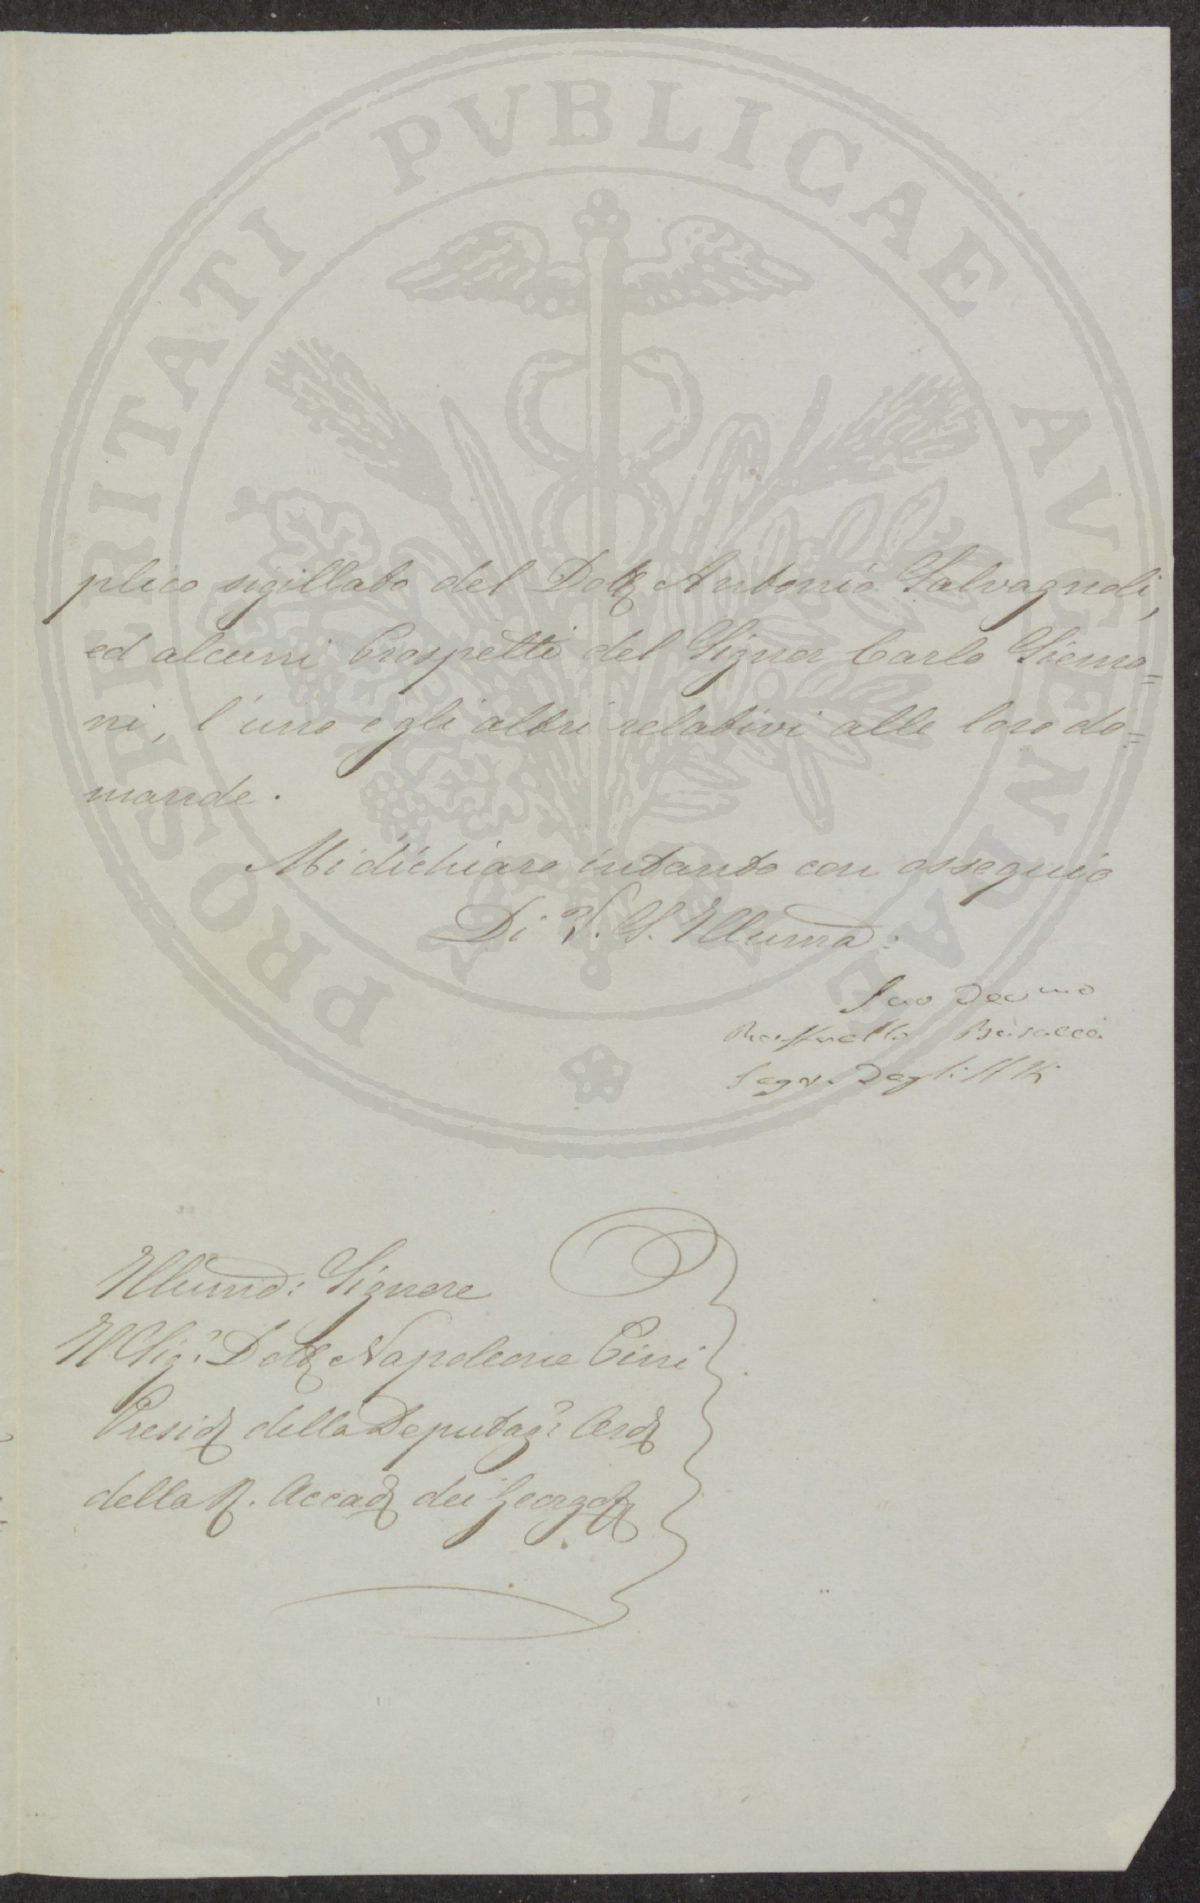 PROSPERITATI PVBLICAE AVGENDAE
plico sigillato del Dott Antonio Salvagnoli,
ed alcuni Prospetti del Signor Carlo Siemo=
ni, l'uno e gli altri relativi alle loro do=
mande.
Mi dichiaro intanto con ossequio
Di V. S. Illuma:
Suo Devmo
Raffaello Busacca
Segr. Degli Atti
Illumo: Signore
Il Sig: Dott Napoleone Pini
Presid della Deputaz: Ord
della R. Accad dei Georgof